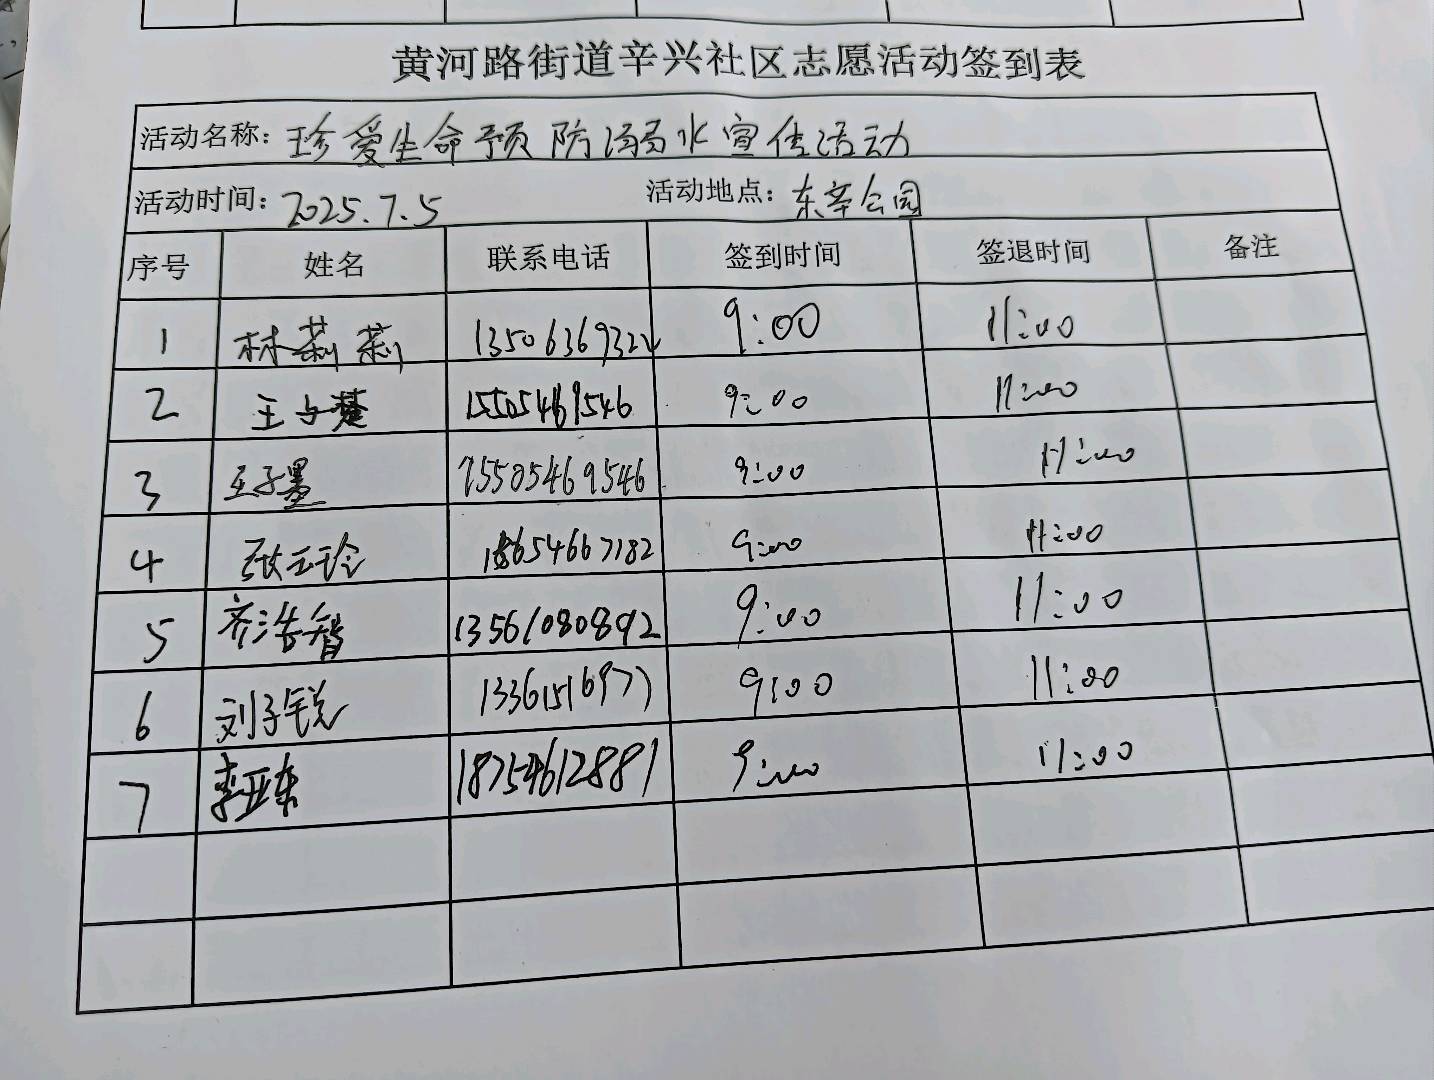 黄河路街道辛兴社区志愿活动签到表
活动名称：珍爱生命预防溺水宣传活动
活动时间：2025.7.5 活动地点：东辛公园
序号 姓名 联系电话 签到时间 签退时间 备注
1 林莉莉 13506369322 9:00 11:00
2 王 15505469546 9:00 11:00
3 王子墨 15505469546 9:00 11:00
4 张玉玲 18654667182 9:00 11:00
5 齐浩 13561080892 9:00 11:00
6 刘子锐 13361516977 9:00 11:00
7 李亚东 18754612881 9:00 11:00